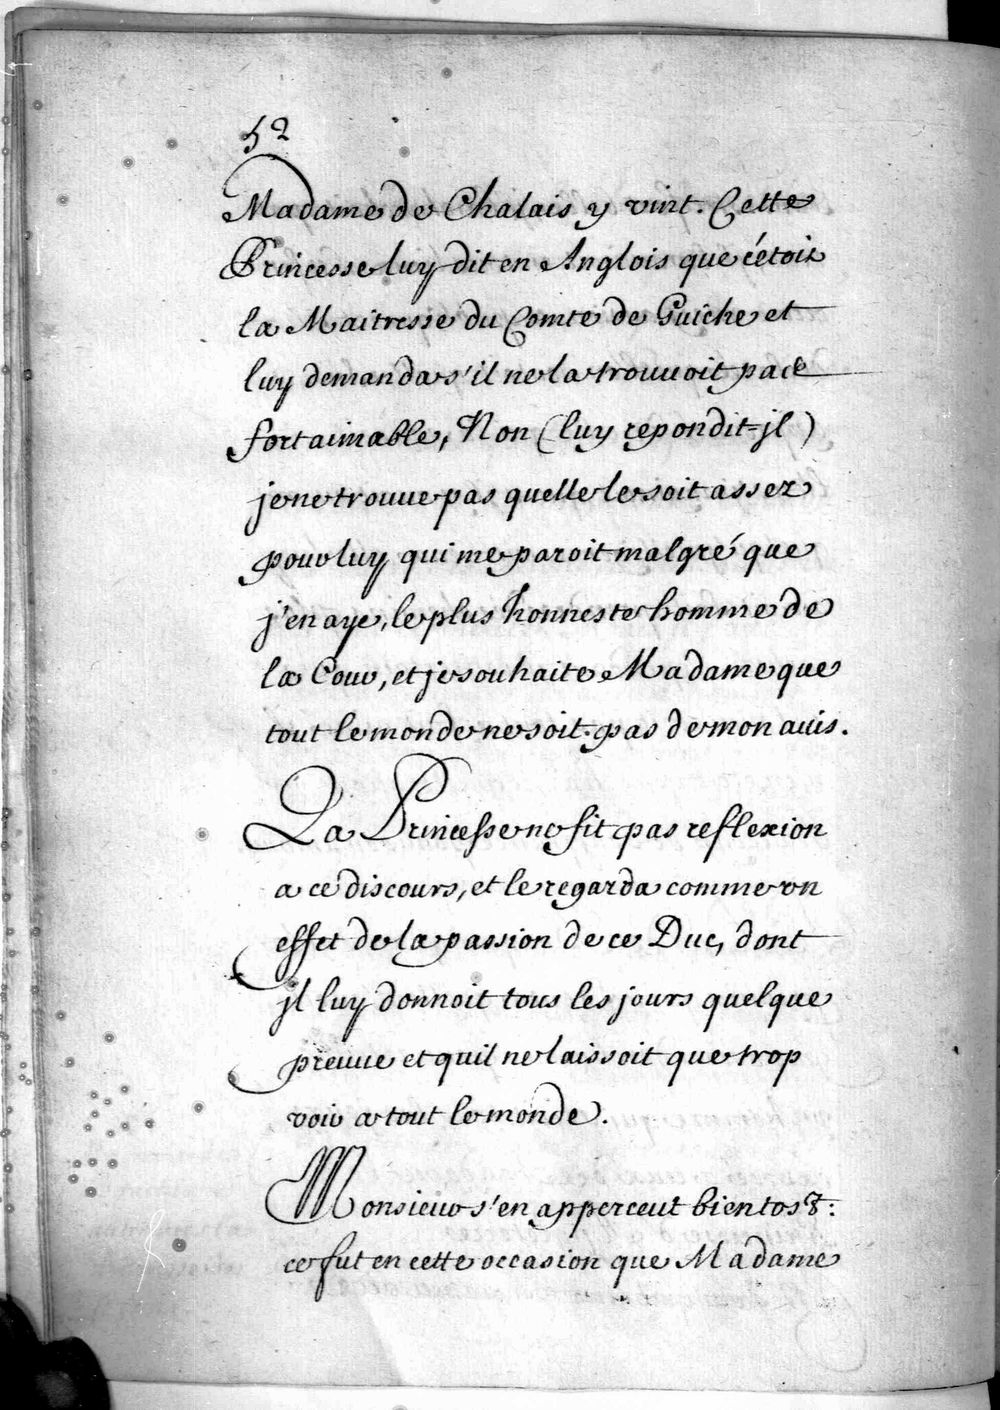 52
Madame de Chalais y vint. Cette
Princesse luy dit en Anglois que c'étoit
la Maitresse du Comte de Guiche et
luy demanda s'il ne la trouvoit pas
fort aimable, Non (luy répondit-jl)
je ne trouve pas quelle le soit assez
pour luy qui me paroit malgré que
j'en aye, le plus honneste homme de
la Cour, et je souhaite Madame que
tout le monde ne soit pas de mon avis.
La Princesse ne fit pas reflexion
a ce discours, et le regarda comme vn
effet de la passion de ce Duc, dont
jl luy donnoit tous les jours quelque
preuve et quil ne laissoit que trop
voir a tout le monde.
Monsieur s'en apperceut bientost:
ce fut en cette occasion que Madame